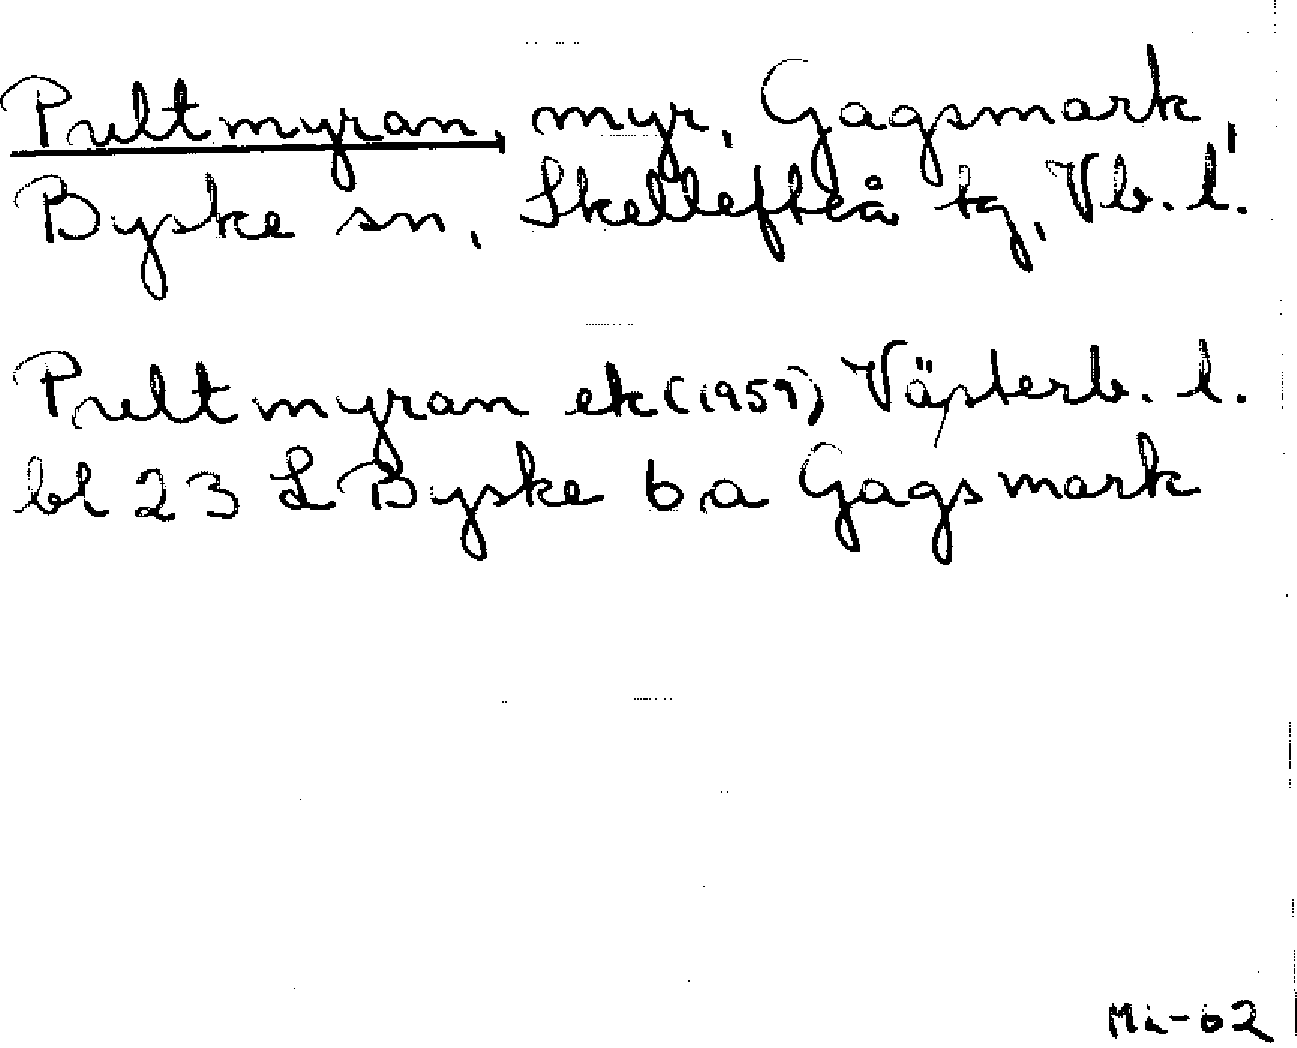 Pultmyran, myr, Gagsmark,
Byske sn, Skellefteå tg, Vb. l.
Pultmyran ek (1959) Västerb. l.
bl 23 L Byske b,a Gagsmark